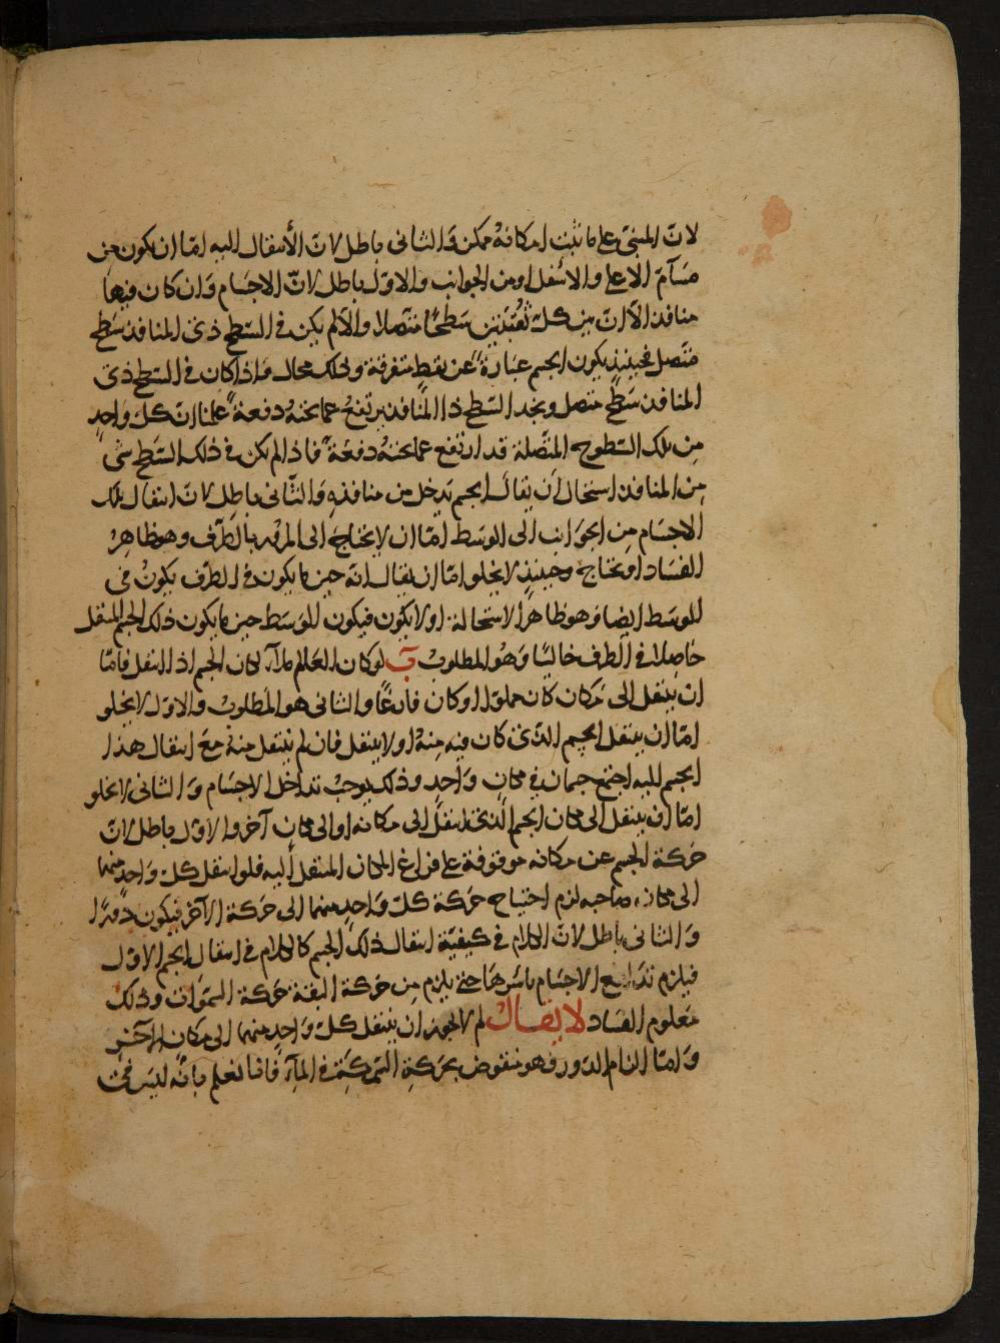 لان المبنى على ما ثبت امكانه ممكن وَالثانى باطل لانّ الأنتقال اليه امّا ان يكون من
مسَامّ الاعلى والاسْفل او من الجوانب والاوّل باطل لانّ الاجسَام وَان كان فيها
منافذ الّا انّ بين كلّ ثقبَتَين سَطحًا متّصلا والّا لم يكن فى السّطح ذى المنافذ سَطح
متّصل فحينئذ يكون الجسم عبَارةً عن نقط متفرقة وذلك محال وَاذا كان فى السّطح ذى
المنافذ سَطح متصل ونجد السّطح ذا المنافذ يرتفع عما تحته دفعةً علمنا انّ كلّ واحدٍ
مِن تلك السّطوح المتّصلة قد ارتفع عما تحته دفعَةً فاذ الم يكن فى ذلك السّطح شئ
مِن المنافذ استحال أن يقال الجسم يَدخل من منافذهِ وَالثّانى باطِل لانّ انتقال تلك
الاجسَام مِن الجوَانب الى الوسَط امّا ان لا يحتاج الى المرور بالطّرف وهو ظاهِر
الفسَاد او يحتاج وحينئذٍ لا يخلو امّا ان يقال انّه حين ما يكون فى الطّرف يكون فى
الوسَط ايضا وهو ظاهر الاستحالة او لا يكون فيكون الوَسَط حين ما يكون ذلك الجسم المنتقل
حَاصِلا فى الطرف خاليًا وَهُو المطلوب ب لو كان العَالم ملآء لكان الجسم اذا انتقل فامّا
ان ينتقل الى مَكان كان مملوّا او كان فارغًا والثانى هو المَطلوب والاوّل لا يخلو
امّا أن ينتقل الجسم الّذى كان فيه مِنهُ او لا ينتقل فان لم ينتقل منهُ معَ انتقال هذا
الجسم اليه اجتمع جسمان فى مكانٍ وَاحدٍ وذلك يوجبُ تداخل الاجسَام وَالثانى لا يخلو
امّا أن ينتقل الى مكان الجسم الّذى انتقل الى مكانه او الى مكانٍ آخر والاوّل باطل لانّ
حَركة الجسم عن مكانه موقوفة على فراغ المكان المنتقل اليه فلو انتقل كلّ وَاحدٍ منهما
الى مكان صاحبه لزم احتياج حَركة كلّ وَاحدٍ منهما الى حَركة الآخر فيكون دَورًا
وَالثانى باطل لانّ الكلام فى كيفيّة انتقال ذلك الجسم كالكلام فى انتقال الجسم الاوّل
فيلزم تدَافع الاجسَام باسْرهَا حتى يلزم مِن حَركة البقة حَركة السّموَات وذلك
مَعلوم الفسَاد لا يقال لم لا يجوز ان ينتقل كلّ وَاحدٍ منهما الى مكان الآخر
وَامّا الزام الدّور فهو منقوض بحَركةِ السّمكة فى المآء فانا نعلم بانّه ليسَ فى